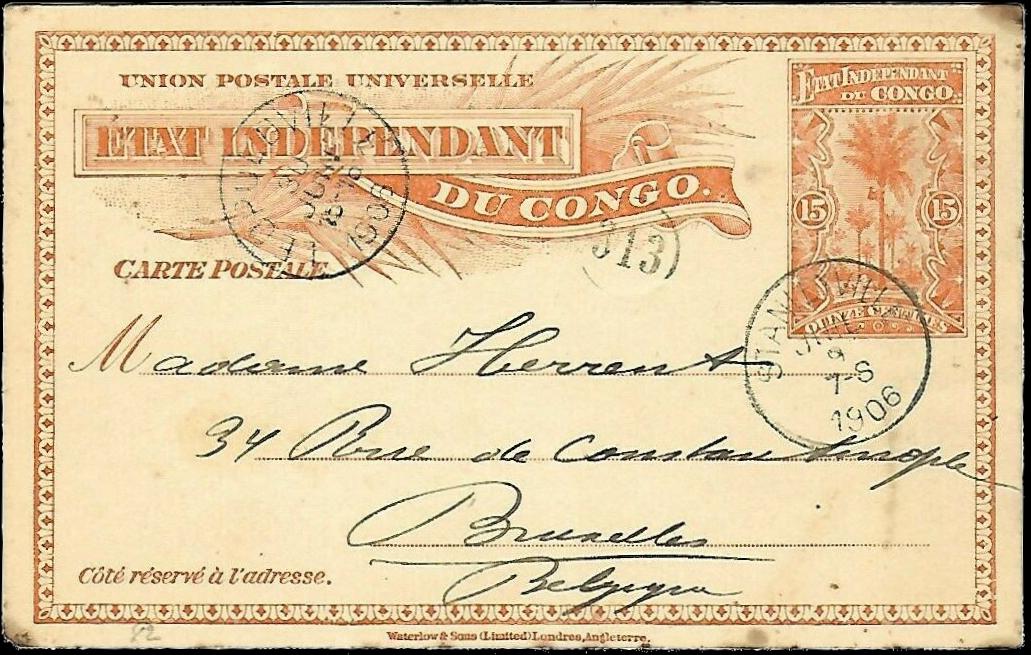 UNION POSTALE UNIVERSELLE
ETAT INDEPENDANT
DU CONGO.
CARTE POSTALE
ETAT INDEPENDANT
DU CONGO
15 15
QUINZE CENTIMES
LEOPOLDVILLE
1906
313
STANLEYVILLE
JUIL
9
7-S
1906
Madame Herrent
34 Rue de Constantinople
Bruxelles
Belgique
Côté réservé à l'adresse.
82
Waterlow & Sons (Limited) Londres, Angleterre.